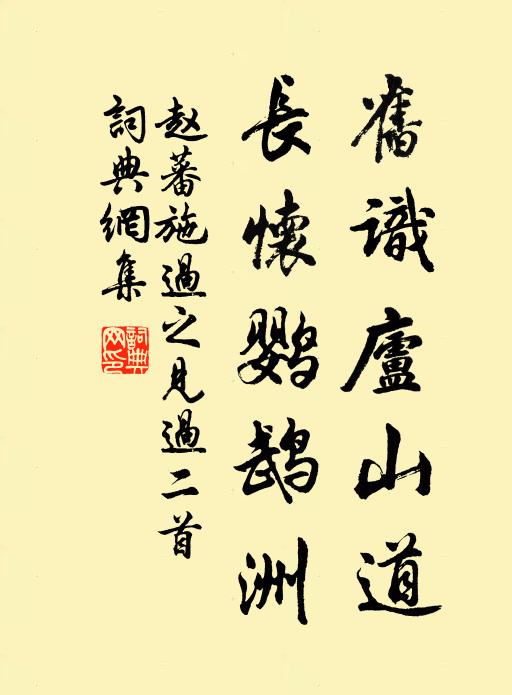 舊識廬山道
長懷鹦鹉洲
赵蕃施過之見過二首
詞典網集
詞典网印